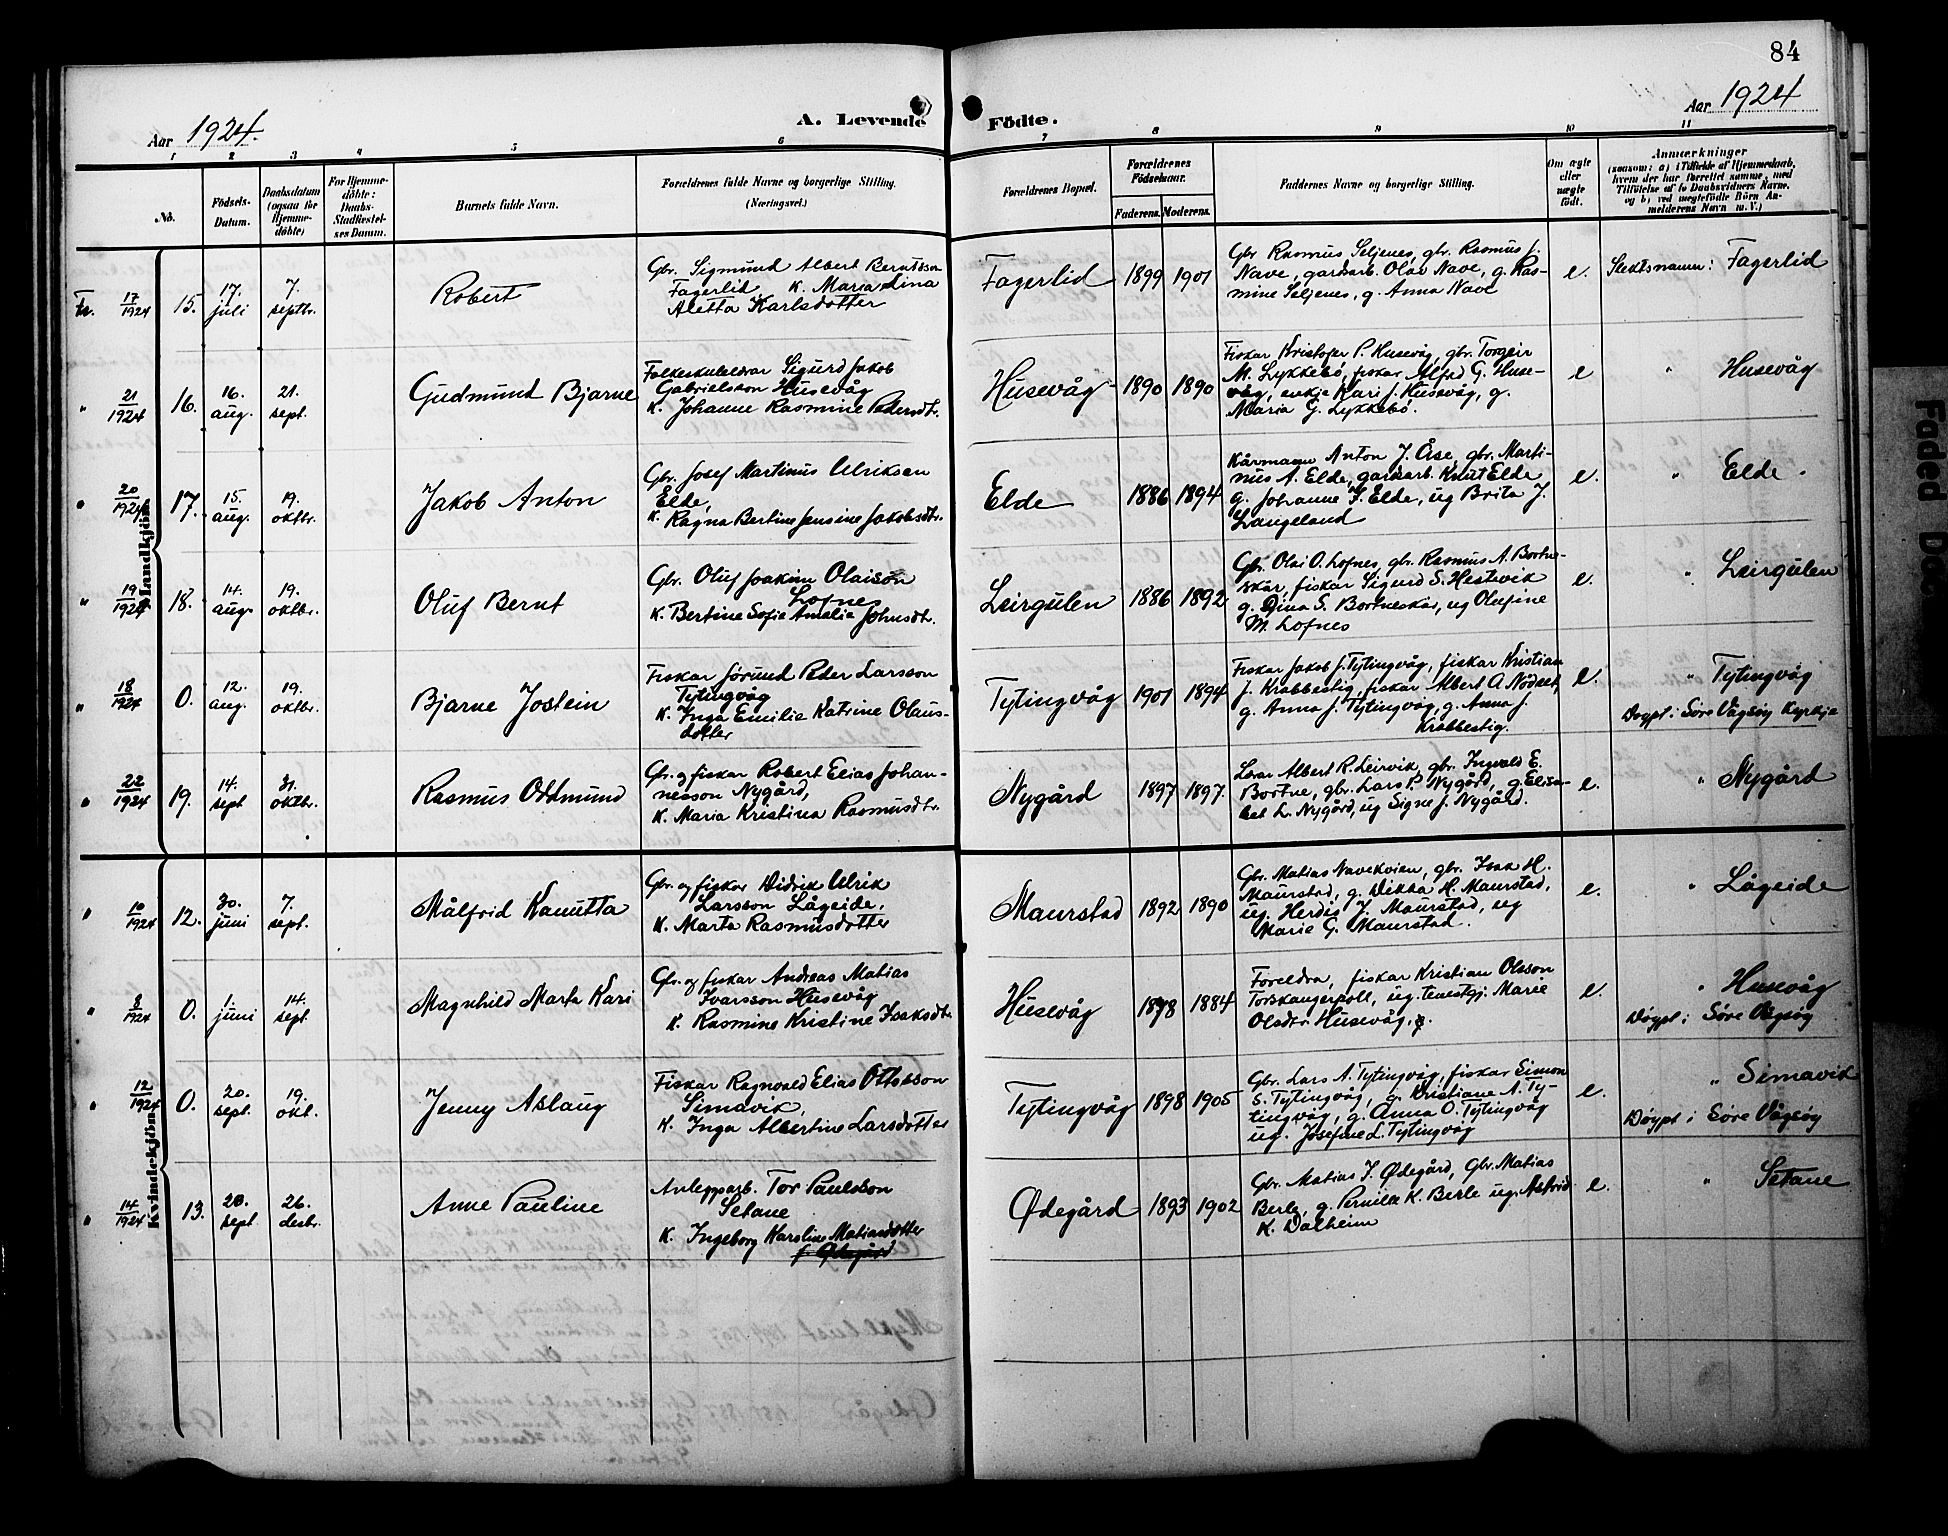 84
Aar 1924.
A. Levende Födte.
Aar 1924
1 2 3 4 5 6 7 8 9 10 11
No.
Födsels-
Datum.
Daabsdatum
(ogsaa for
Hjemme-
döbte)
For Hjemme-
döbte:
Daabs-
Stadfæstel-
ses Datum.
Barnets fulde Navn.
Forældrenes fulde Navne og borgerlige Stilling.
(Næringsvei.)
Forældrenes Bopæl.
Forældrenes
Födselsaar.
Faderens. Moderens.
Faddernes Navne og borgerlige Stilling.
Om ægte
eller
uægte
født.
Anmærkninger
(saasom: a) i Tilfælde af Hjemmedaab,
hvem der har forrettet samme, med
Tilföielse af to Daabsvidners Navne,
og b) ved uægtefödte Börn An-
melderens Navn m. V.)
Mandkjön.
Fr. 17/1924 15.
17.
juli
7.
septbr.
Robert
Gbr. Sigmund Albert Berntsson
Fagerlid K. Maria Lina
Aletta Karlsdotter
Fagerlid 1899 1901
Gbr Rasmus Seljenes, gbr. Rasmus J.
Nave, gardarb. Olav Nave, g. Ras-
mine Seljenes, g. Anna Nave
e. Slektsnamn: Fagerlid
" 21/1924 16.
16.
aug.
21.
sept.
Gudmund Bjarne
Folkeskulelærar Sigurd Jakob
Gabrielsson Husevåg
K. Johanne Rasmine Pedersdtr.
Husevåg 1890 1890
Fiskar Kristofer P. Husevåg, gbr. Torgeir
M. Lykkebø, fiskar Alfred G. Huse-
våg, enkje Kari J. Husevåg, g.
Maria G. Lykkebø.
e " Husevåg
" 20/1924 17.
15.
aug.
19.
oktbr.
Jakob Anton
Gbr. Josef Martinus Ulriksen
Elde,
K. Ragna Bertine Jensine Jakobsdtr.
Elde 1886 1894
Kårmann Anton J. Åse, gbr. Marti-
nus A. Elde, gardarb. Knut Elde
g. Johanne J. Elde, ug Brita J.
Langeland
e. " Elde
" 19/1924 18.
14.
aug.
19.
oktbr.
Oluf Bernt
Gbr. Oluf Joakim Olaison
Lofnes
K. Bertine Sofie Amalia Johnsdtr.
Leirgulen 1886 1892
Gbr. Olai O. Lofnes, gbr. Rasmus A. Bortne-
skar, fiskar Sigurd S. Hestevik
g. Dina S. Bortneskar, ug Olufine
M. Lofnes
e. " Leirgulen
" 18/1924 0.
12.
aug.
19.
oktbr.
Bjarne Jostein
Fiskar Jørund Peder Larsson
Tytingvåg
K. Inga Emilie Katrine Olaus-
dotter
Tytingvåg 1901 1894
Fiskar Jakob J. Tytingvåg, fiskar Kristian
J. Krabbestig, fiskar Albert A Nødset,
g. Anna J. Tytingvåg, g. Anna J.
Krabbestig.
e. " Tytingvåg
Døypt i Søre Vågsøy Kyrkje
" 22/1924 19.
14.
sept
31.
oktbr.
Rasmus Oddmund
Gbr. og fiskar Robert Elias Johan-
nesson Nygård,
K. Maria Kristina Rasmusdtr.
Nygård 1897 1897.
Lærar Albert R. Leirvik, gbr. Ingvald E.
Bortne, gbr. Lars P. Nygård, g. Elisa-
bet L. Nygård, ug Signe J. Nygård.
e. " Nygård
Kvindekjön.
" 10/1924 12.
30.
juni
7.
sept.
Målfrid Kanutta
Gbr. og fiskar Didrik Ulrik
Larsson Lågeide,
K. Marta Rasmusdotter
Maurstad 1892 1890
Gbr. Matias Navekvien, gbr. Isak H.
Maurstad, g. Dikka H. Maurstad,
ug. Herdis J. Maurstad, ug
Marie G. Maurstad.
e. " Lågeide
" 8/1924 0.
1.
juni
14.
sept.
Magnhild Marta Kari
Gbr. og fiskar Andreas Matias
Ivarsson Husevåg
K. Rasmine Kristine Isaksdtr.
Husevåg 1878 1884
Foreldra, fiskar Kristian Olsson
Torskangerpoll, ug. tenestgj. Marie
Olsdtr Husevåg,
e. " Husevåg
Døypt i Søre Vågsøy
" 12/1924 0.
20.
sept.
19.
okt.
Jenny Aslaug
Fiskar Ragnvald Elias Ottesson
Simavik,
K. Inga Albertine Larsdotter
Tytingvåg 1898 1905
Gbr. Lars A. Tytingvåg, fiskar Simon
S. Tytingvåg, g. Kristiane A. Ty-
tingvåg, g. Anna O. Tytingvåg
ug. Josefine L. Tytingvåg
e. " Simavik
Døypt i Søre Vågsøy
" 14/1924 13.
20.
sept
26.
desbr.
Anne Pauline
Anleggsarb. Tor Paulsson
Setane
K. Ingeborg Karoline Matiasdotter
f. Ødegård
Ødegård 1893 1902
Gbr. Matias J. Ødegård, Gbr. Matias
Berle, g. Pernilla K. Berle ug. Astrid
K. Dalheim
e. " Setane
Faded Doc